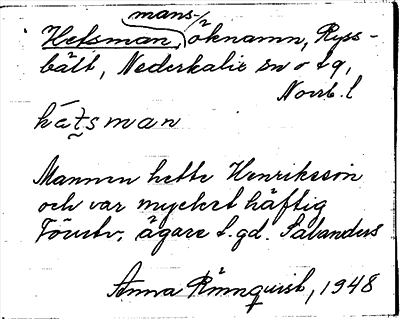 mans-
Hetsman, öknamn, Ryss-
bält, Nederkalix sn o tg,
Norrb. l
hátsman
Mannen hette Henriksson
och var mycket häftig
ägare t. gd. Salanders
Anna Rönnqvist, 1948